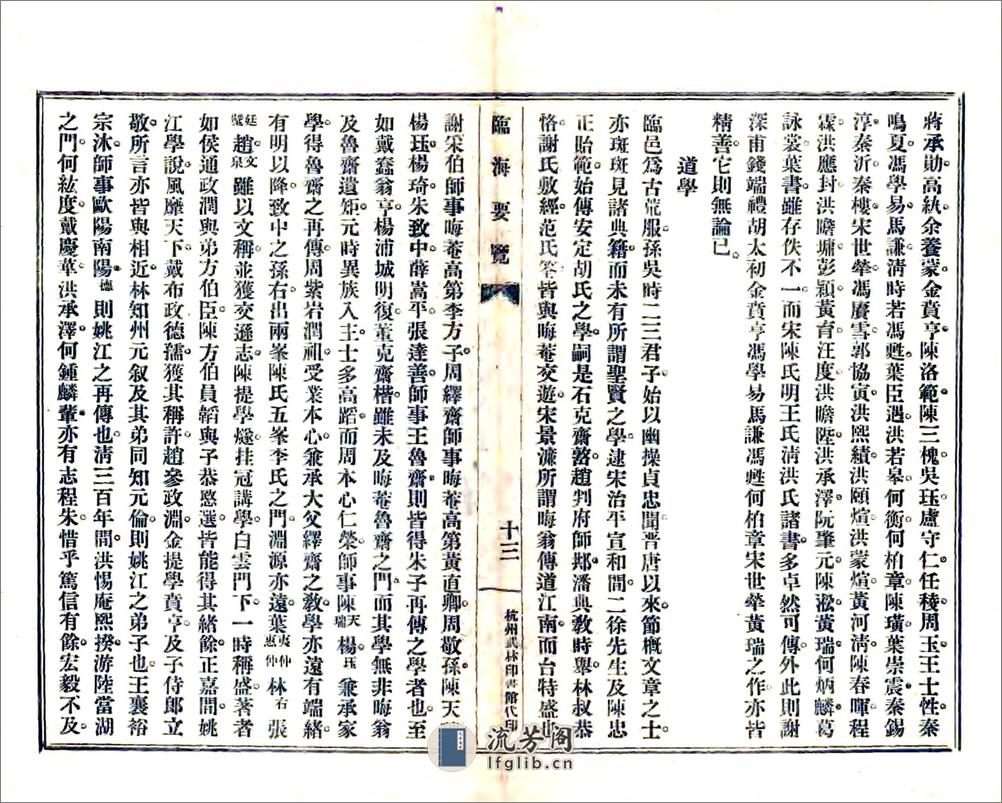 蔣承勛高紈余養蒙金賁亨陳洛範陳三槐吳珏盧守仁任稜周玉王士性秦
鳴夏馮學易馬謙淸時若馮甦葉臣遇洪若皋何衡何柏章陳璜葉崇震秦錫
淳秦沂秦樓宋世犖馮賡雪郭協寅洪熙績洪頤煊洪蒙煊黃河淸陳春暉程
霖洪應封洪瞻墉彭穎黃育汪度洪瞻陞洪承澤阮肇元陳淞黃瑞何炳麟葛
詠裳葉書雖存佚不一而宋陳氏明王氏淸洪氏諸書多卓然可傳外此則謝
深甫錢端禮胡太初金賁亨馮學易馬謙馮甦何柏章宋世犖黃瑞之作亦皆
精善它則無論已
道學
臨邑爲古荒服孫吳時二三君子始以幽操貞忠聞晋唐以來節槪文章之士
亦斑斑見諸典籍而未有所謂聖賢之學逮宋治平宣和間二徐先生及陳忠
正貽範始傳安定胡氏之學嗣是石克齋𡼖趙判府師郟潘典敎時舉林叔恭
恪謝氏敷經范氏等皆與晦菴交遊宋景濂所謂晦翁傳道江南而台特盛也
臨海要覽
十三
杭州武林印書館代印
謝宋伯師事晦菴高第李方子周繹齋師事晦菴高第黃直卿周敬孫陳天
楊珏楊琦朱致中薛嵩平張達善師事王魯齋則皆得朱子再傳之學者也至
如戴蠢翁亨楊浦城明復董克齋楷雖未及晦菴魯齋之門而其學無非晦翁
及魯齋遺矩元時異族入主士多高蹈而周本心仁榮師事陳天瑞楊珏兼承家
學得魯齋之再傳周紫岩潤祖受業本心兼承大父繹齋之敎學亦遠有端緒
有明以降致中之孫右出兩峯陳氏五峯李氏之門淵源亦遠葉夷仲惠仲林右張
廷璧趙文泉雖以文稱並獲交遜志陳提學燧挂冠講學白雲門下一時稱盛著者
如侯通政潤與弟方伯臣陳方伯員韜與子恭愍選皆能得其緒餘正嘉間姚
江學說風靡天下戴布政德孺獲其稱許趙參政淵金提學賁亨及子侍郎立
敬所言亦皆與相近林知州元叙及其弟同知元倫則姚江之弟子也王襄裕
宗沐師事歐陽南陽德則姚江之再傳也淸三百年間洪惕庵熙揆游陸當湖
之門何紘度戴慶華洪承澤何鍾麟輩亦有志程朱惜乎篤信有餘宏毅不及
流芳阁
lfglib.cn